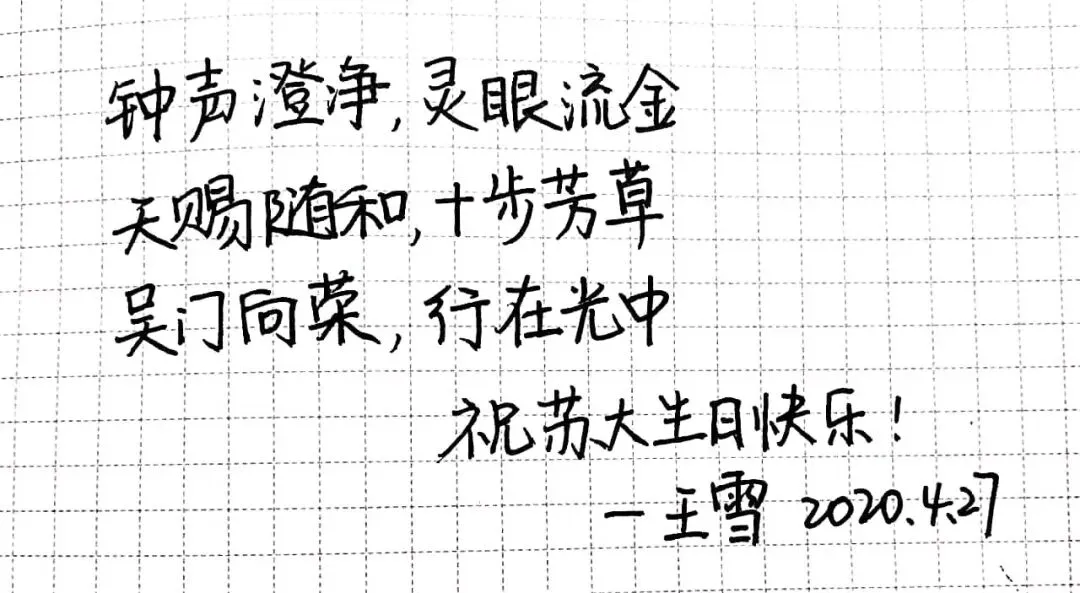 钟声澄净,灵眼流金
天赐随和,十步芳草
吴门向荣,行在光中
祝苏大生日快乐!
—王雪 2020.4.27